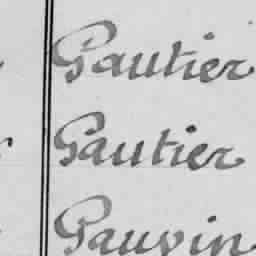 Gautier
Gautier
Gauvin